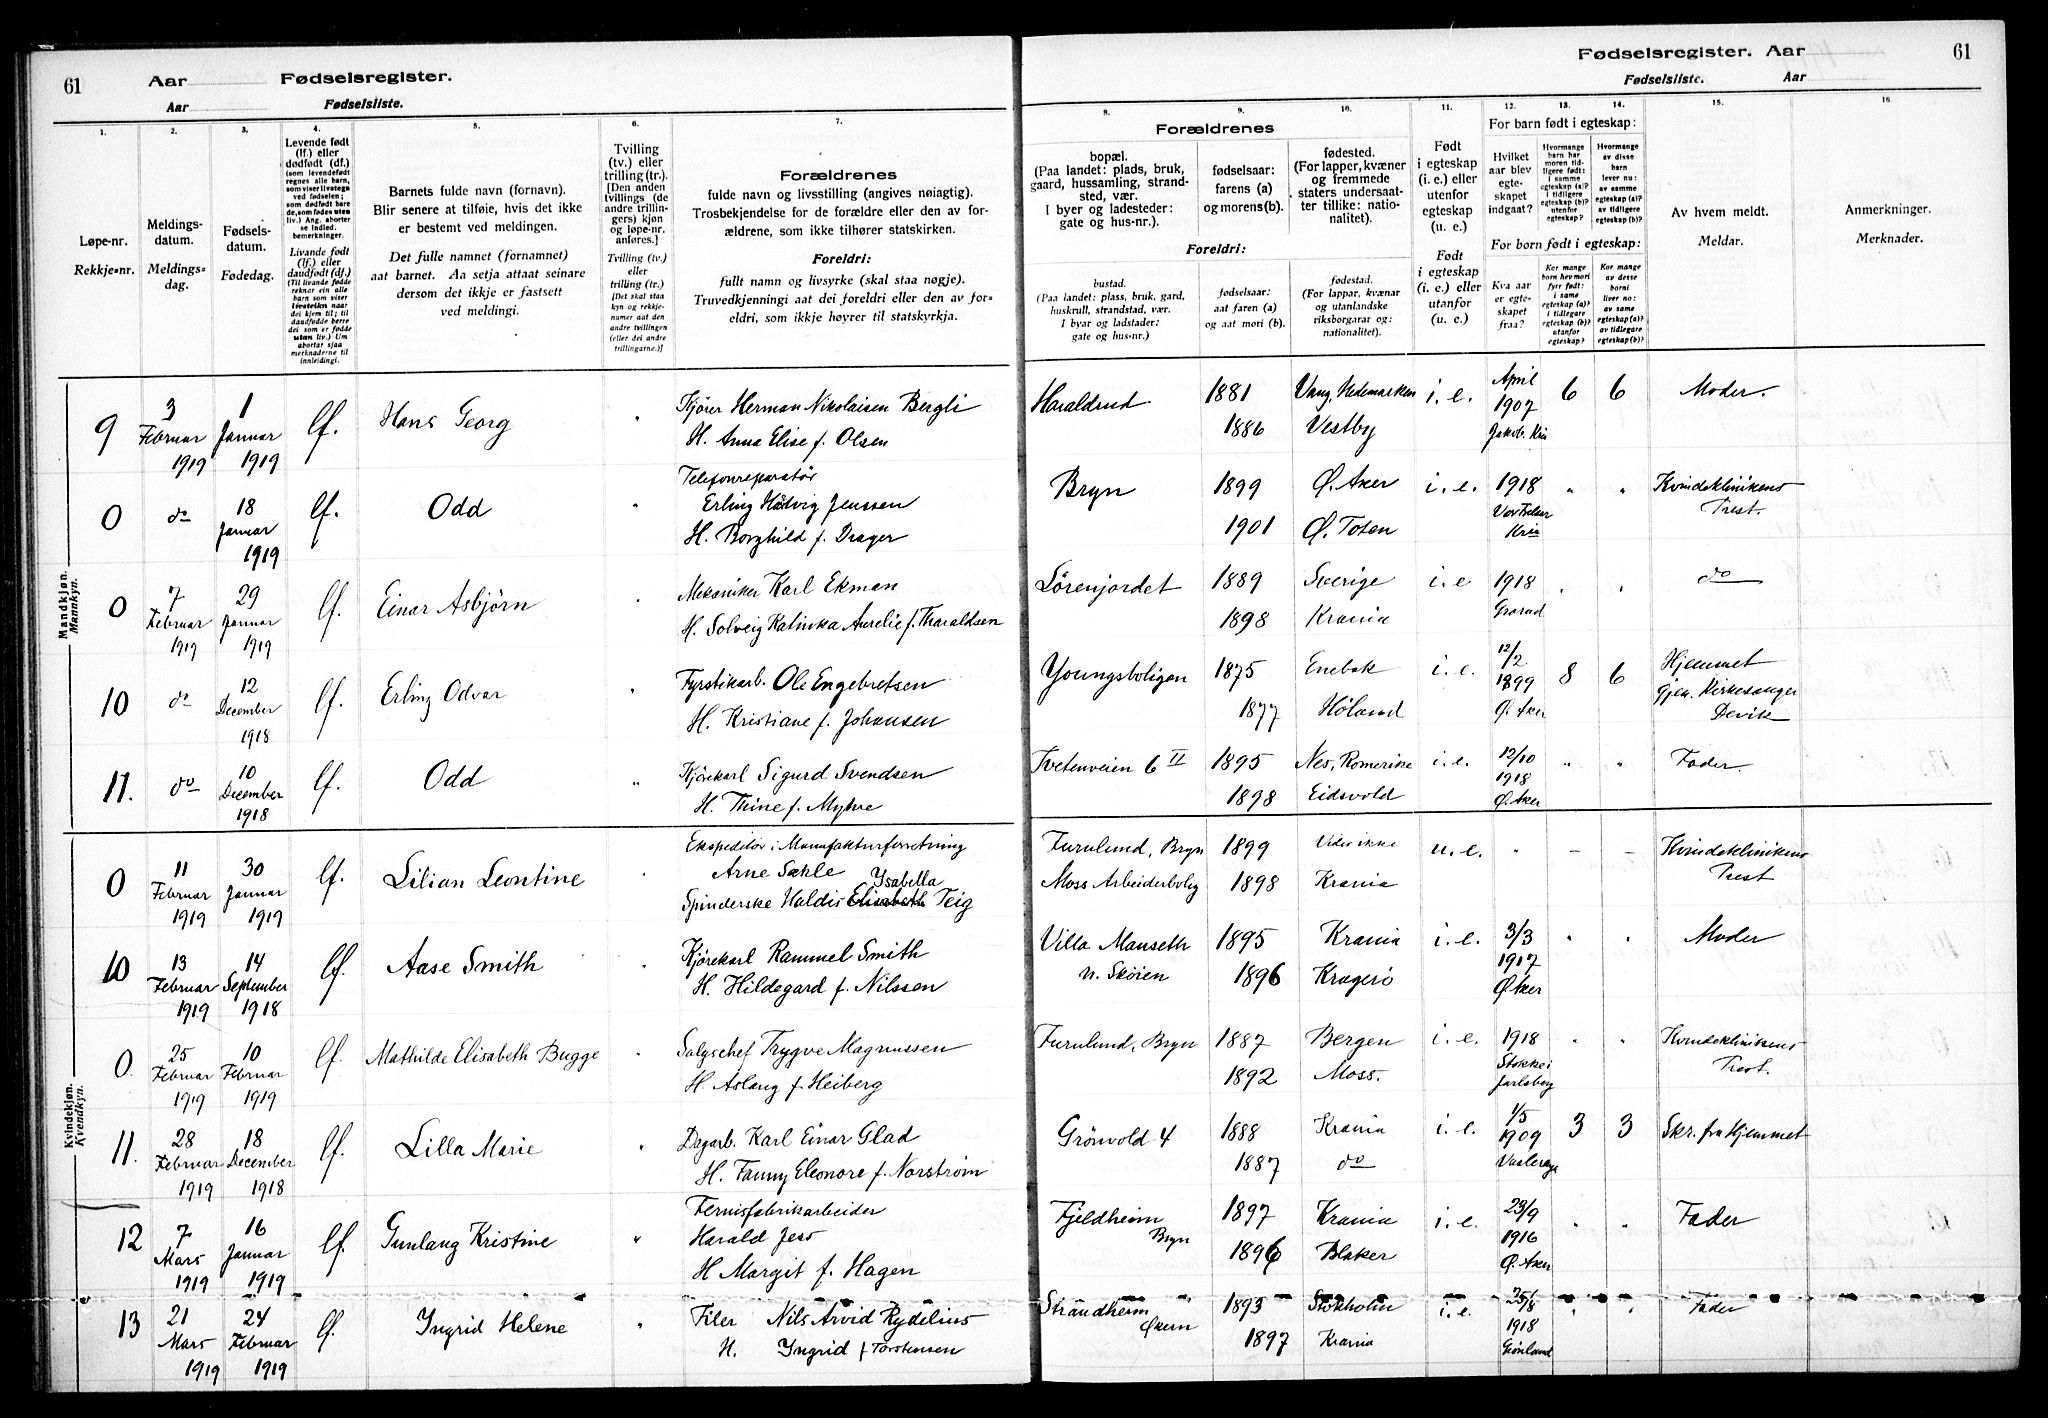 61
Aar
Fødselsregister.
Aar
Fødselsliste.
1.
2.
3.
4.
5.
6.
7.
Løpe-nr.
Rekkje-nr.
Meldings-
datum.
Meldings-
dag.
Fødsels-
datum.
Fødedag.
Levende født
(lf.) eller
dødfødt (df.)
Livande født
(lf.) eller
daudfødt (df.)
Barnets fulde navn (fornavn).
Blir senere at tilføie, hvis det ikke
er bestemt ved meldingen.
Det fulle namnet (fornamnet)
aat barnet. Aa setja attaat seinare
dersom det ikkje er fastsett
ved meldingi.
Tvilling
(tv.) eller
trilling (tr.).
[Den anden
tvillings (de
andre trillin-
gers) kjøn
og løpe-nr.
anføres.]
Tvilling (tv.)
eller
trilling (tr.)
[Det skal staa
kyn og rekkje-
numer aat den
andre tvillingen
(eller dei andre
trillingarne.)]
Forældrenes
fulde navn og livsstilling (angives nøiagtig).
Trosbekjendelse for de forældre eller den av for-
ældrene, som ikke tilhører statskirken.
Foreldri:
fullt namn og livsyrke (skal staa nøgje).
Truvedkjenningi aat dei foreldri eller den av for-
eldri, som ikkje høyrer til statskyrkja.
Mandkjøn.
Mannkyn.
9
3 Februar 1919
1 Januar 1919
lf.
Hans Georg
"
Kjører Herman Nikolaisen Bergli
H. Anna Elise f. Olsen
0
do
18 Januar 1919
lf.
Odd
"
Telefonreparatør
Erling Hedvig Jenssen
H. Borghild f. Drager
0
7 Februar 1919
29 Januar 1919
lf.
Einar Asbjørn
"
Mekaniker Karl Ekman
H. Solveig Katinka Aurelie f. Tharaldsen
10
do
12 December 1918
lf.
Erling Odvar
"
Fyrstikarb. Ole Engebretsen
H. Kristiane f. Johansen
11.
do
10 December 1918
lf.
Odd
"
Kjørekarl Sigurd Svendsen
H. Thine f. Myhre
Kvindekjøn.
Kvendkyn.
0
11 Februar 1919
30 Januar 1919
lf.
Lilian Leontine
Ekspeditør i Manufakturforretning
Arne Sæhle
Ysabella
Spinderske Haldis Elisabeth Teig
10
13 Februar 1919
14 September 1918
lf.
Aase Smith
"
Kjørekarl Rammel Smith
H. Hildegard f. Nilssen
0.
25 Februar 1919
10 Februar 1919
lf.
Mathilde Elisabeth Bugge
"
Salgschef Trygve Magnussen
H. Aslaug f. Heiberg
11.
28 Februar 1919
18 December 1918
lf.
Lilla Marie
"
Dagarb. Karl Einar Glad
H. Fanny Eleonore f. Norstrøm
12
7 Mars 1919
16 Januar 1919
lf.
Gunlaug Kristine
"
Fernisfabrikarbeider
Harald Jess
H Margit f. Hagen
13
21 Mars 1919
24 Februar 1919
lf.
Yngrid Helene
"
Filer Nils Arvid Rydelius
H. Yngrid f Torstensen
Fødselsregister. Aar
61
Fødselsliste.
Aar
8.
9.
10.
11.
12.
13.
14.
15.
16.
Forældrenes
bopæl.
(Paa landet: plads, bruk,
gaard, hussamling, strand-
sted, vær.
I byer og ladesteder:
gate og hus-nr.).
fødselsaar:
farens (a)
og morens(b).
fødested.
(For lapper, kvæner
og fremmede
staters undersaat-
ter tillike: natio-
nalitet).
Foreldri:
bustad.
(Paa landet: plass, bruk, gard,
huskrull, strandstad, vær.
I byar og ladstader:
gate og hus-nr.)
fødselsaar:
aat faren (a)
og aat mori (b).
fødestad.
(For lappar, kvænar
og utanlandske
riksborgarar og:
nationalitet).
Født
i egteskap
(i. e.) eller
utenfor
egteskap
(u. e.)
Født
i egteskap
(i. e.) eller
utanfor
(u. e.)
For barn født i egteskap:
Hvilket
aar blev
egte-
skapet
indgaat?
For born født i egteskap:
Kva aar
er egte-
skapet
fraa?
Av hvem meldt.
Meldar.
Anmerkninger.
Merknader.
Haraldrud
1881
1886
Vang, Hedemarken
Vestby
i. e.
April 1907
Jakob. Kria
6
6
Moder.
Bryn
1899
1901
Ø. Aker
Ø. Toten
i. e.
1918
Kria
"
"
Kvindeklinikens
Prest.
Lørenjordet
1889
1898
Sverige
Krania
i. e
1918
Grorud
"
"
do
Youngsboligen
1875
1877
Enebak
Høland
i. e.
12/2 1899
Ø. Aker
8
6
Hjemmet
gjen. Kirkesanger
Devik
Tvetenveien 6 II
1895
1898
Nes, Romerike
Eidsvold
i. e.
12/10 1918
Ø. Aker
"
"
Fader.
Furulund, Bryn
Moss Arbeiderbolig
1899
1898
Vides ikke
Krania
u. e.
"
–
–
Kvindeklinikens
Prest
Villa Manseth
n. Skøien
1895
1896
Krania
Kragerø
i. e.
3/3 1917
Ø Aker
"
"
Moder
Furulund, Bryn
1887
1892
Bergen
Moss.
i. e.
1918
Stokke i
Jarlsberg
"
"
Kvindeklinikens
Prest.
Grönvold 4
1888
1887
Krania
do
i. e.
1/5 1909
3
3
Skr. fra Hjemmet
Fjeldheim
Bryn
1897
1896
Krania
Blaker
i. e.
23/9 1916
Ø. Aker
"
"
Fader
Strandheim
Økern
1893
1897
Stokholm
Krania
i. e.
25/8 1918
Grønland
"
"
Fader